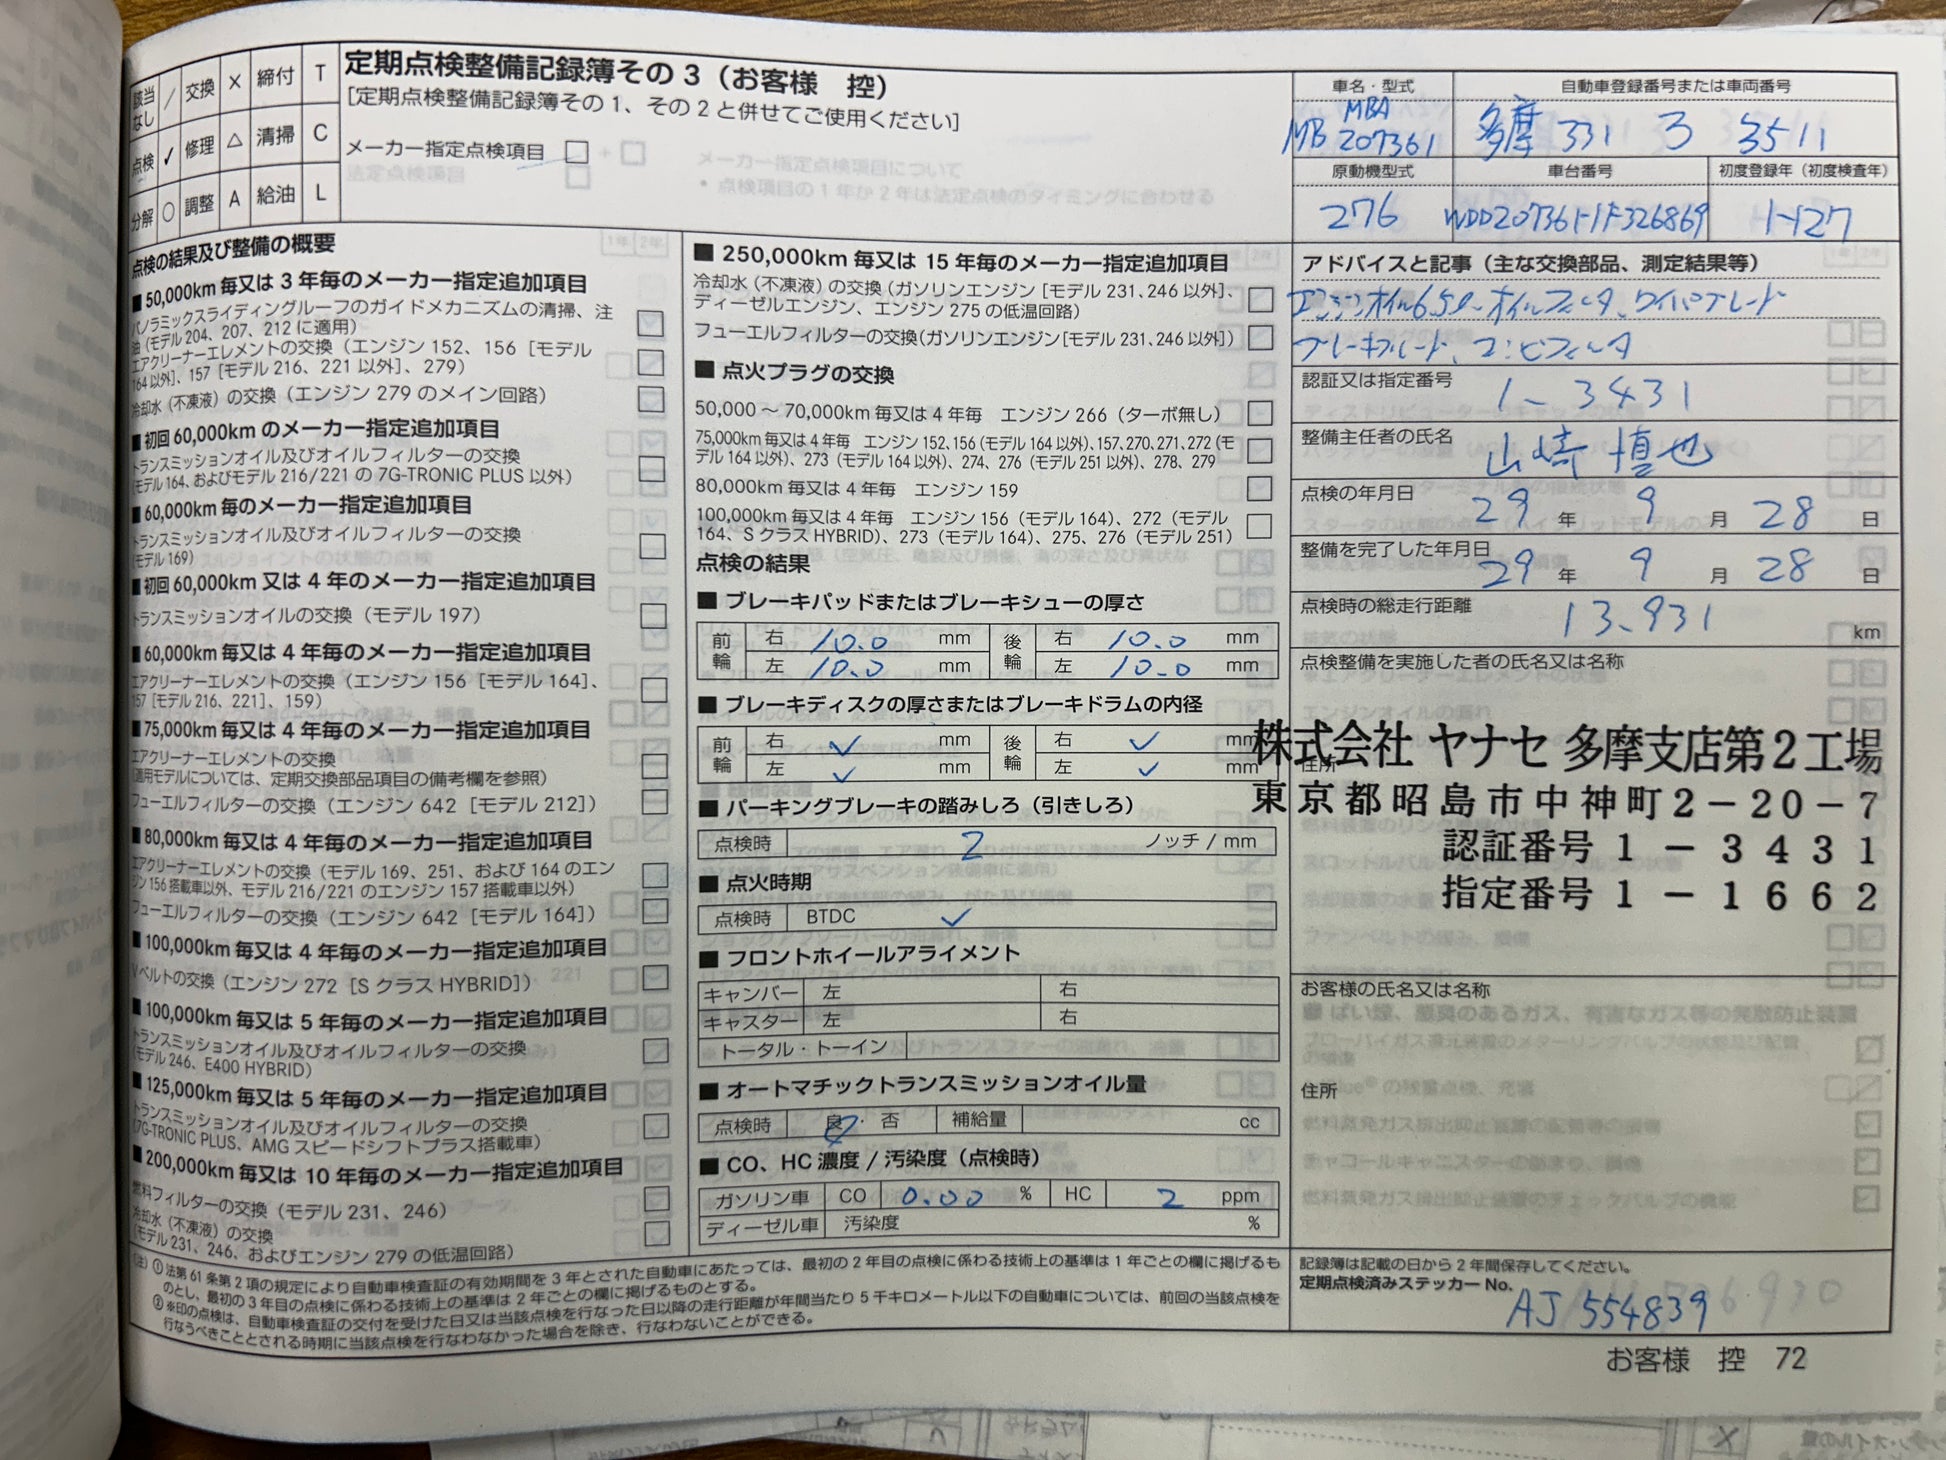 該当なし / 交換 × 締付 T
点検 ✓ 修理 △ 清掃 C
分解 ○ 調整 A 給油 L
定期点検整備記録簿その3（お客様 控）
[定期点検整備記録簿その1、その2と併せてご使用ください]
メーカー指定点検項目 □
車名・型式
MB MBA 207361
自動車登録番号または車両番号
多摩 331 ろ 3511
原動機型式
276
車台番号
初度登録年（初度検査年）
H27
点検の結果及び整備の概要
■ 50,000km 毎又は 3 年毎のメーカー指定追加項目
パノラミックスライディングルーフのガイドメカニズムの清掃、注
油（モデル 204、207、212 に適用）
エアクリーナーエレメントの交換（エンジン 152、156［モデル
164 以外］、157［モデル 216、221 以外］、279）
冷却水（不凍液）の交換（エンジン 279 のメイン回路）
■ 初回 60,000km のメーカー指定追加項目
トランスミッションオイル及びオイルフィルターの交換
（モデル 164、およびモデル 216/221 の 7G-TRONIC PLUS 以外）
■ 60,000km 毎のメーカー指定追加項目
トランスミッションオイル及びオイルフィルターの交換
（モデル 169）
■ 初回 60,000km 又は 4 年のメーカー指定追加項目
トランスミッションオイルの交換（モデル 197）
■ 60,000km 毎又は 4 年毎のメーカー指定追加項目
エアクリーナーエレメントの交換（エンジン 156［モデル 164］、
157［モデル 216、221］、159）
■ 75,000km 毎又は 4 年毎のメーカー指定追加項目
エアクリーナーエレメントの交換
（適用モデルについては、定期交換部品項目の備考欄を参照）
フューエルフィルターの交換（エンジン 642［モデル 212］）
■ 80,000km 毎又は 4 年毎のメーカー指定追加項目
エアクリーナーエレメントの交換（モデル 169、251、および 164 のエン
ジン 156 搭載車以外、モデル 216/221 のエンジン 157 搭載車以外）
フューエルフィルターの交換（エンジン 642［モデル 164］）
■ 100,000km 毎又は 4 年毎のメーカー指定追加項目
Vベルトの交換（エンジン 272［S クラス HYBRID］）
■ 100,000km 毎又は 5 年毎のメーカー指定追加項目
トランスミッションオイル及びオイルフィルターの交換
（モデル 246、E400 HYBRID）
■ 125,000km 毎又は 5 年毎のメーカー指定追加項目
トランスミッションオイル及びオイルフィルターの交換
（7G-TRONIC PLUS、AMG スピードシフトプラス搭載車）
■ 200,000km 毎又は 10 年毎のメーカー指定追加項目
燃料フィルターの交換（モデル 231、246）
冷却水（不凍液）の交換
（モデル 231、246、およびエンジン 279 の低温回路）
■ 250,000km 毎又は 15 年毎のメーカー指定追加項目
冷却水（不凍液）の交換（ガソリンエンジン［モデル 231、246 以外］、
ディーゼルエンジン、エンジン 275 の低温回路）
フューエルフィルターの交換（ガソリンエンジン［モデル 231、246 以外］）
■ 点火プラグの交換
50,000 ～ 70,000km 毎又は 4 年毎 エンジン 266（ターボ無し）
75,000km 毎又は 4 年毎 エンジン 152、156（モデル 164 以外）、157、270、271、272（モ
デル 164 以外）、273（モデル 164 以外）、274、276（モデル 251 以外）、278、279
80,000km 毎又は 4 年毎 エンジン 159
100,000km 毎又は 4 年毎 エンジン 156（モデル 164）、272（モデル
164、S クラス HYBRID）、273（モデル 164）、275、276（モデル 251）
点検の結果
■ ブレーキパッドまたはブレーキシューの厚さ
前輪 右 10.0 mm 後輪 右 10.0 mm
左 10.0 mm 左 10.0 mm
■ ブレーキディスクの厚さまたはブレーキドラムの内径
前輪 右 ✓ mm 後輪 右 ✓ mm
左 ✓ mm 左 ✓ mm
■ パーキングブレーキの踏みしろ（引きしろ）
点検時 2 ノッチ / mm
■ 点火時期
点検時 BTDC ✓
■ フロントホイールアライメント
キャンバー 左 右
キャスター 左 右
トータル・トーイン
■ オートマチックトランスミッションオイル量
点検時 良・否 補給量 cc
■ CO、HC 濃度 / 汚染度（点検時）
ガソリン車 CO 0.00 % HC 2 ppm
ディーゼル車 汚染度 %
アドバイスと記事（主な交換部品、測定結果等）
エンジンオイル6.5ℓ、オイルフィルタ、ワイパブレード
ブレーキフルード、コンビフィルタ
認証又は指定番号
1-3431
整備主任者の氏名
山崎 慎也
点検の年月日
29 年 9 月 28 日
整備を完了した年月日
29 年 9 月 28 日
点検時の総走行距離
13,931 km
点検整備を実施した者の氏名又は名称
株式会社 ヤナセ 多摩支店第2工場
住所
東京都昭島市中神町2－20－7
認証番号 1－3431
指定番号 1－1662
お客様の氏名又は名称
住所
記録簿は記載の日から 2 年間保存してください。
定期点検済みステッカー No.
AJ 554839
（注）① 法第 61 条第 2 項の規定により自動車検査証の有効期間を 3 年とされた自動車にあたっては、最初の 2 年目の点検に係わる技術上の基準は 1 年ごとの欄に掲げるも
のとし、最初の 3 年目の点検に係わる技術上の基準は 2 年ごとの欄に掲げるものとする。
② ※印の点検は、自動車検査証の交付を受けた日又は当該点検を行なった日以降の走行距離が年間当たり 5 千キロメートル以下の自動車については、前回の当該点検を
行なうべきこととされる時期に当該点検を行なわなかった場合を除き、行なわないことができる。
お客様 控 72